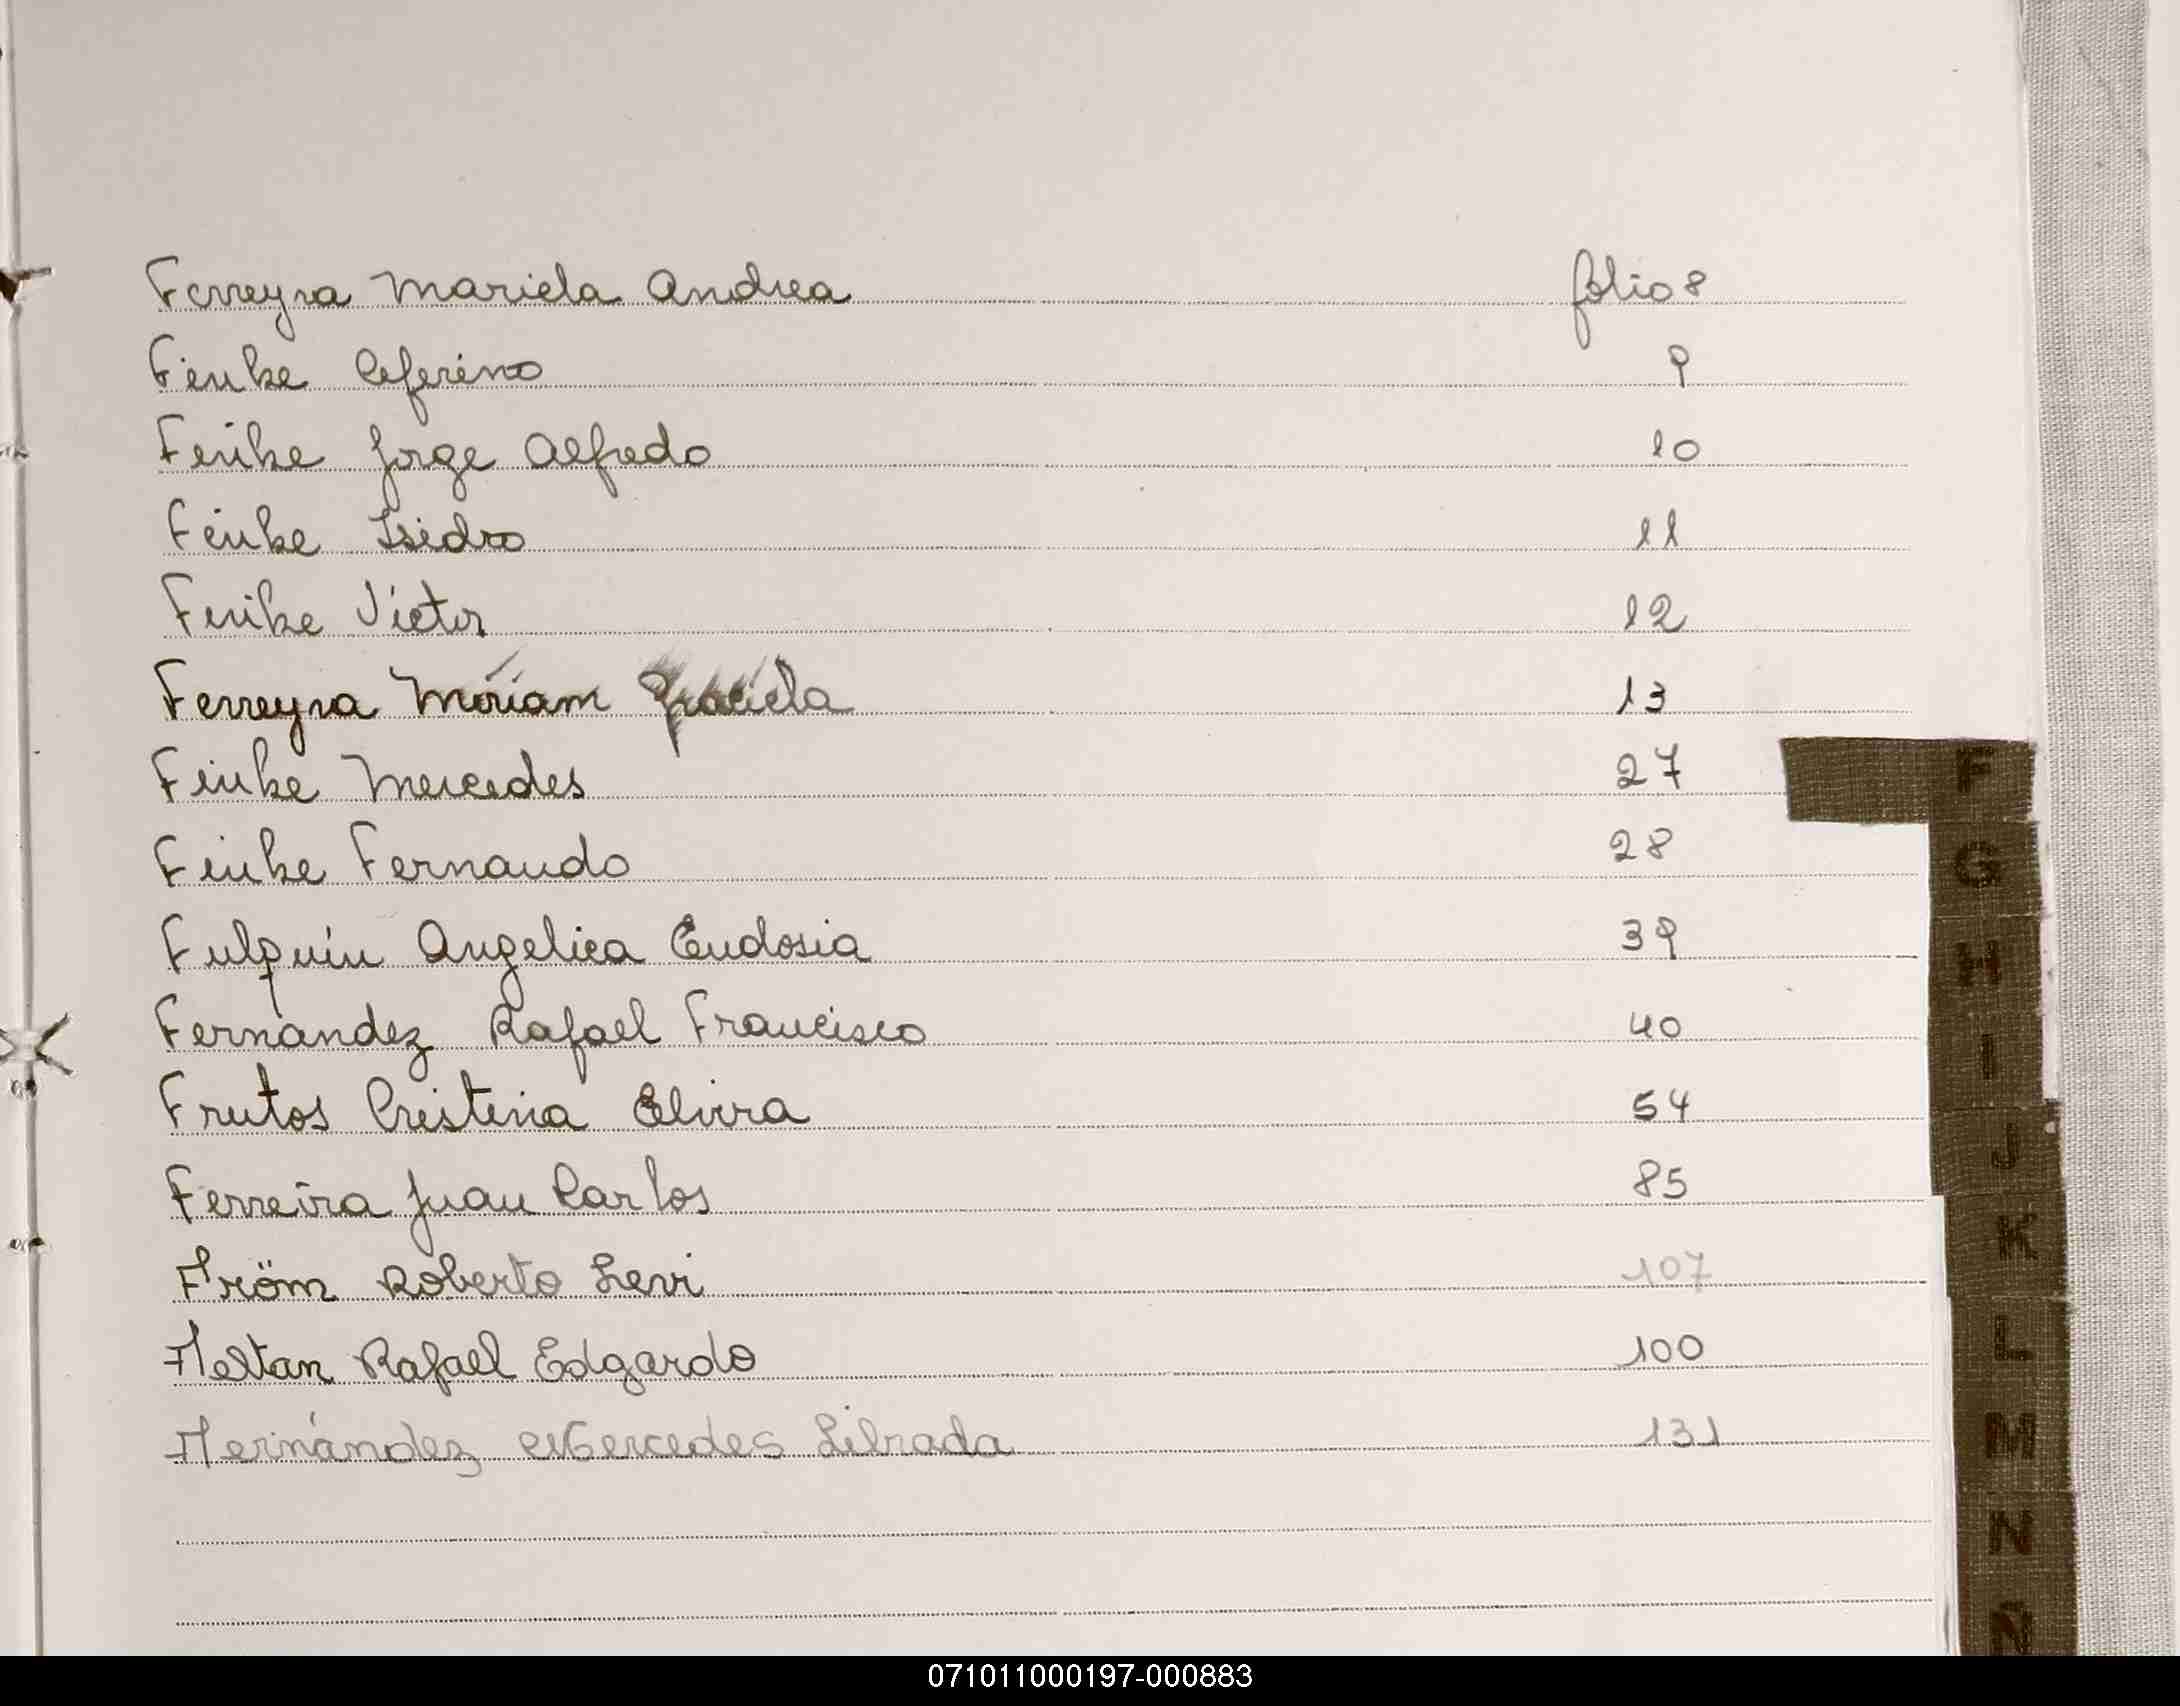 Ferreyra Mariela Andrea folio 8
Feuke Ceferino 9
Feuke Jorge Alfredo 10
Feuke Isidro 11
Feuke Víctor 12
Ferreyra Miriam Graciela 13
Feuke Mercedes 27
F
Feuke Fernando 28
G
Fulquin Angelica Eudosia 39
H
Fernandez Rafael Francisco 40
I
Frutos Cristina Elvira 54
J
Ferreira Juan Carlos 85
K
Fröm Roberto Levi 107
L
Rafael Edgardo 100
M
Fernández Mercedes Librada 131
N
Ñ
071011000197-000883